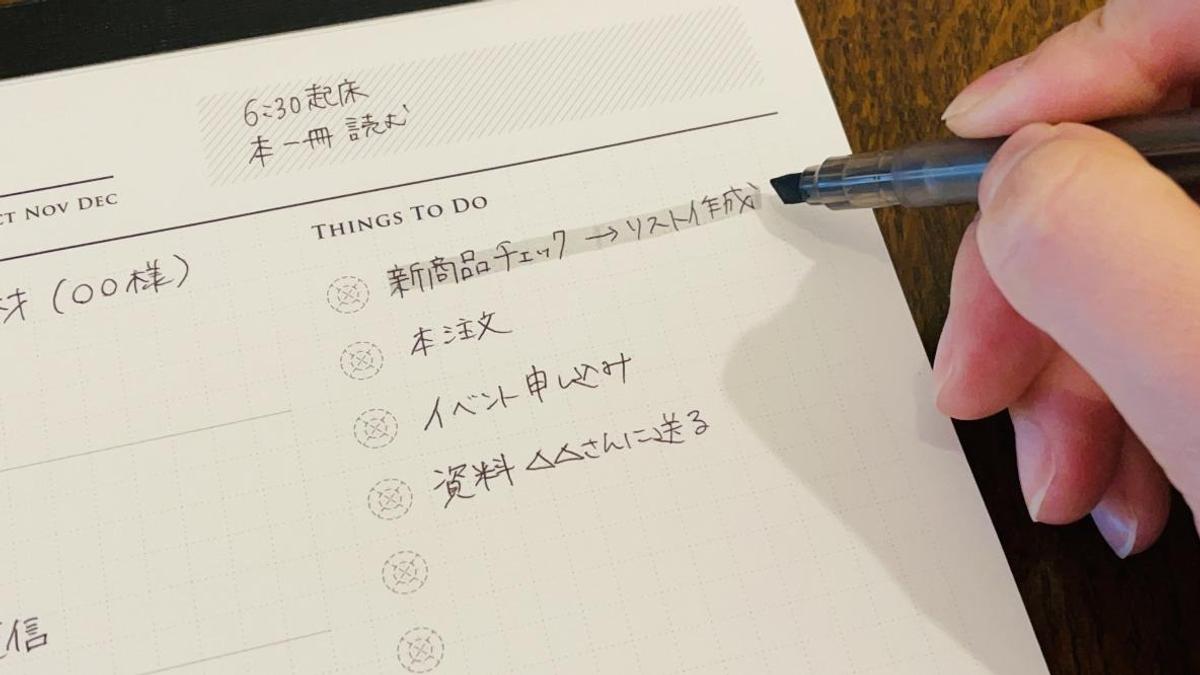 6:30起床
本一冊 読む
CT NOV DEC
THINGS TO DO
材（○○様）
新商品チェック→リスト作成
本注文
イベント申し込み
資料 △△さんに送る
信